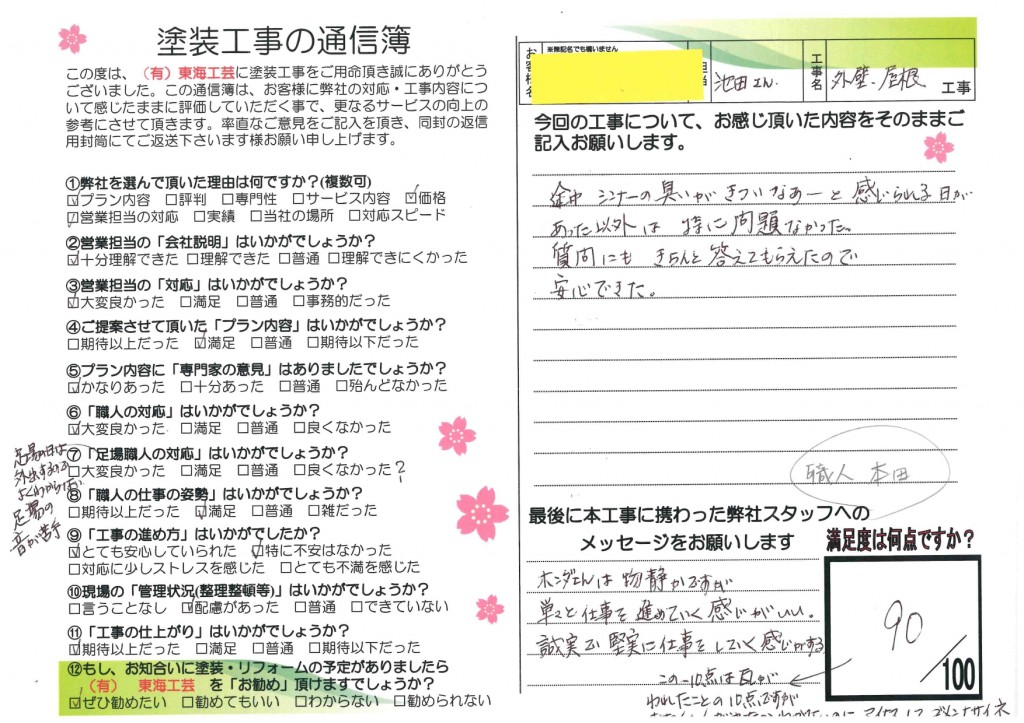 塗装工事の通信簿
この度は、(有)東海工芸に塗装工事をご用命頂き誠にありがとう
ございました。この通信簿は、お客様に弊社の対応・工事内容につ
いて感じたままに評価していただく事で、更なるサービスの向上の
参考にさせて頂きます。率直なご意見をご記入を頂き、同封の返信
用封筒にてご返送下さいます様お願い申し上げます。
①弊社を選んで頂いた理由は何ですか?(複数可)
☑プラン内容 □評判 □専門性 □サービス内容 ☑価格
☑営業担当の対応 □実績 □当社の場所 □対応スピード
②営業担当の「会社説明」はいかがでしょうか?
☑十分理解できた □理解できた □普通 □理解できにくかった
③営業担当の「対応」はいかがでしょうか?
☑大変良かった □満足 □普通 □事務的だった
④ご提案させて頂いた「プラン内容」はいかがでしょうか?
□期待以上だった ☑満足 □普通 □期待以下だった
⑤プラン内容に「専門家の意見」はありましたでしょうか?
☑かなりあった □十分あった □普通 □殆んどなかった
⑥「職人の対応」はいかがでしょうか?
☑大変良かった □満足 □普通 □良くなかった
⑦「足場職人の対応」はいかがでしょうか?
□大変良かった □満足 □普通 □良くなかった ?
足場の日は
外出する
よくわからない
足場の
音が苦手
⑧「職人の仕事の姿勢」はいかがでしょうか?
□期待以上だった ☑満足 □普通 □雑だった
⑨「工事の進め方」はいかがでしたか?
☑とても安心していられた ☑特に不安はなかった
□対応に少しストレスを感じた □とても不満を感じた
⑩現場の「管理状況(整理整頓等)」はいかがでしょうか?
□言うことなし ☑配慮があった □普通 □できていない
⑪「工事の仕上がり」はいかがでしょうか?
☑期待以上だった □満足 □普通 □期待以下だった
⑫もし、お知合いに塗装・リフォームの予定がありましたら
(有) 東海工芸 を「お勧め」頂けますでしょうか?
☑ぜひ勧めたい □勧めてもいい □わからない □勧められない
※無記名でも構いません
お客様名
担当
池田さん
工事名
外壁・屋根 工事
今回の工事について、お感じ頂いた内容をそのままご
記入お願いします。
途中 シンナーの臭いが きついなあーと 感じられる日が
あった以外は 特に問題なかった。
質問にも きちんと答えてもらえたので
安心できた。
職人 本田
最後に本工事に携わった弊社スタッフへの
メッセージをお願いします
ホンダさんは物静かですが
単々と仕事を進めていく感じがいい。
誠実で堅実に仕事をしていく感じがする
この-10点は瓦が
われたことの10点ですが
満足度は何点ですか?
90
/100